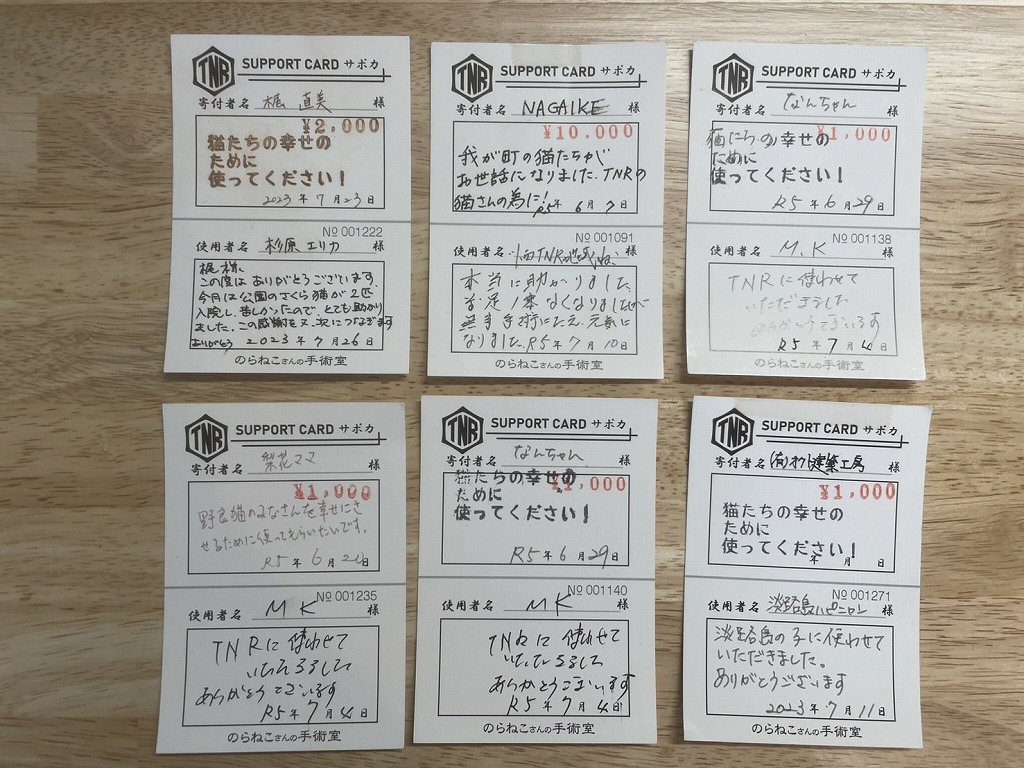 TNR SUPPORT CARD サポカ
寄付者名 梶 直美 様
¥2,000
猫たちの幸せの
ために
使ってください！
2023年7月23日
No 001222
使用者名 杉原 エリカ 様
梶様、
この度は ありがとうございます。
今月は公園のさくら猫が2匹
入院し、苦しかったので、とても助かり
ました。この感謝を又、次につなぎます
ありがとう 2023年7月26日
のらねこさんの手術室
TNR SUPPORT CARD サポカ
寄付者名 NAGAIKE 様
¥10,000
我が町の猫たちが
お世話になりました。TNRの
猫さんの為に！
R5年6月7日
No 001091
使用者名 TNR 様
本当に助かりました
手術にたえ、元気に
なりました。R5年7月10日
のらねこさんの手術室
TNR SUPPORT CARD サポカ
寄付者名 なんちゃん 様
¥1,000
猫たちの幸せの
ために
使ってください！
R5年6月29日
No 001138
使用者名 M.K 様
TNRに使わせて
いただきました
ありがとうございます
R5年7月4日
のらねこさんの手術室
TNR SUPPORT CARD サポカ
寄付者名 梨花ママ 様
¥1,000
野良猫のみなさんを幸せにさ
せるために使ってもらいたいです。
R5年6月2日
No 001235
使用者名 MK 様
TNRに使わせて
いただきました
ありがとうございます
R5年7月4日
のらねこさんの手術室
TNR SUPPORT CARD サポカ
寄付者名 なんちゃん 様
¥1,000
猫たちの幸せの
ために
使ってください！
R5年6月29日
No 001140
使用者名 MK 様
TNRに使わせて
いただきました
ありがとうございます
R5年7月4日
のらねこさんの手術室
TNR SUPPORT CARD サポカ
寄付者名 (有) 建築工房 様
¥1,000
猫たちの幸せの
ために
使ってください！
年 月 日
No 001271
使用者名 淡路島ハピニャン 様
淡路島の子に使わせて
いただきました。
ありがとうございます
2023年7月11日
のらねこさんの手術室